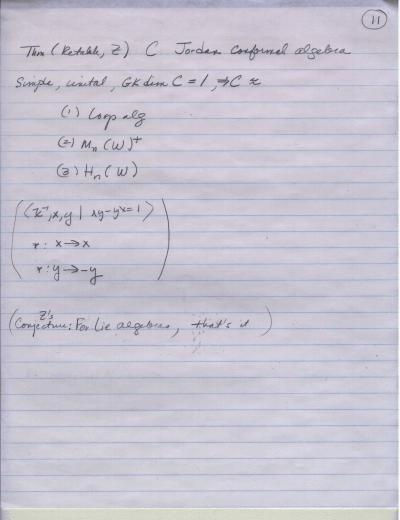 11
Thm (Retakh, Z) C Jordan Conformal algebra
Simple, unital, GKdim C = 1, ⇒ C ≈
(1) Loop alg
(2) Mn(W)+
(3) Hn(W)
(x⁻¹, x, y | xy - yx = 1)
* : x → x
* : y → -y
Z's
(Conjecture: For Lie algebras, that's it)